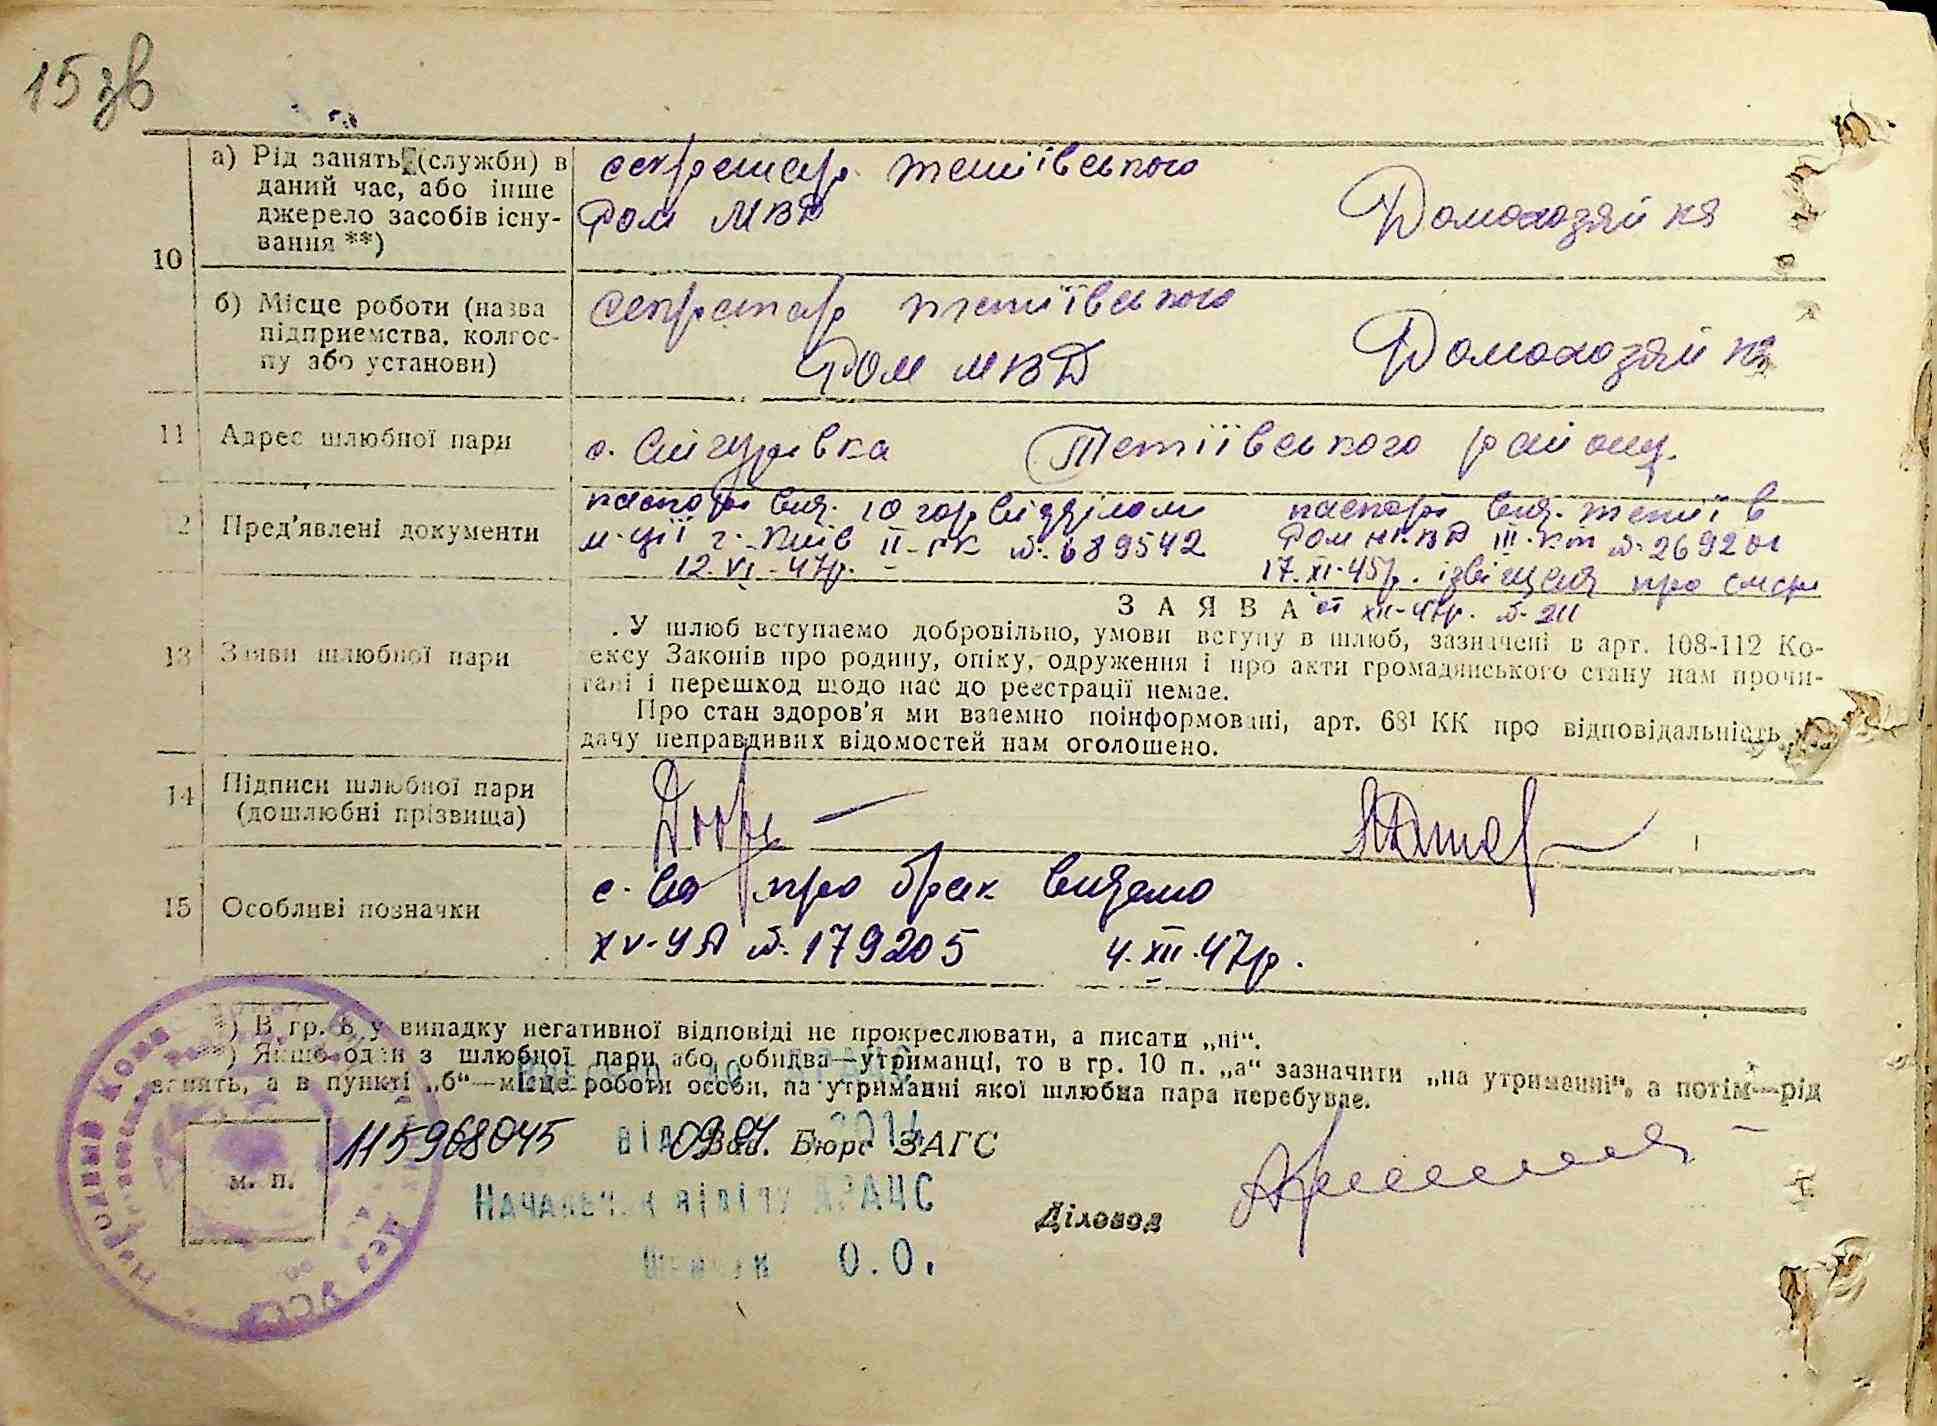 15 зв
а) Рід занять (служби) в
даний час, або інше
джерело засобів існу-
вання **)
10
секретар тетіївського
Ром МВД
Домохозяйка
б) Місце роботи (назва
підприємства, колгос-
пу або установи)
секретар тетіївського
Ром МВД
Домохозяйка
11 Адрес шлюбної пари
с. Снігурівка Тетіївського району
12 Пред'явлені документи
паспорт вид. 10 горвідділом
м-ції г. Київ II-ГК №689542
12.VI-47р.
паспорт вид. тетіїв
Ром НКВД III-км №269201
17.XI-45р. ізвіщения про смерт
от XII-47р. №211
13 Заяви шлюбної пари
ЗАЯВА
У шлюб вступаємо добровільно, умови вступу в шлюб, зазначені в арт. 108-112 Ко-
ексу Законів про родину, опіку, одруження і про акти громадянського стану нам прочи-
тані і перешкод щодо нас до реєстрації немає.
Про стан здоров'я ми взаємно поінформовані, арт. 68¹ КК про відповідальність
дачу неправдивих відомостей нам оголошено.
14 Підписи шлюбної пари
(дошлюбні прізвища)
15 Особливі позначки
с-во про брак видано
XV-УА №179205 4.XII.47р.
*) В гр. 8 у випадку негативної відповіді не прокреслювати, а писати „ні“.
**) Якщо один з шлюбної пари або обидва—утриманці, то в гр. 10 п. „а“ зазначити „на утриманні“, а потім—рід
занять, а в пункті „б“—місце роботи особи, на утриманні якої шлюбна пара перебуває.
м. п.
115968045
від 09.07 2014
Зав. Бюро ЗАГС
Начальник відділу ДРАЦС
О.О.
Діловод